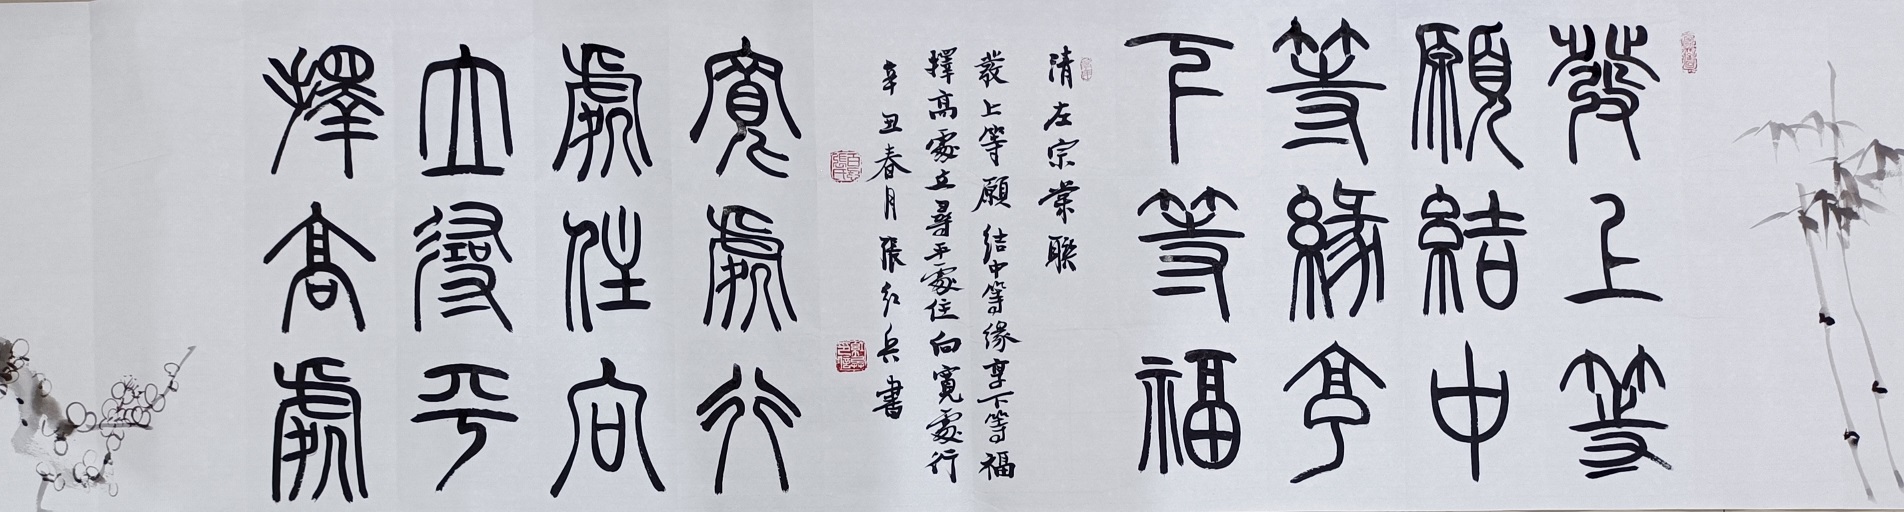 發上等
願結中
等緣享
下等福
清左宗棠聯
發上等願結中等緣享下等福
擇高處立尋平處住向寬處行
辛丑春月張红兵書
擇高處
立尋平
處住向
寬處行